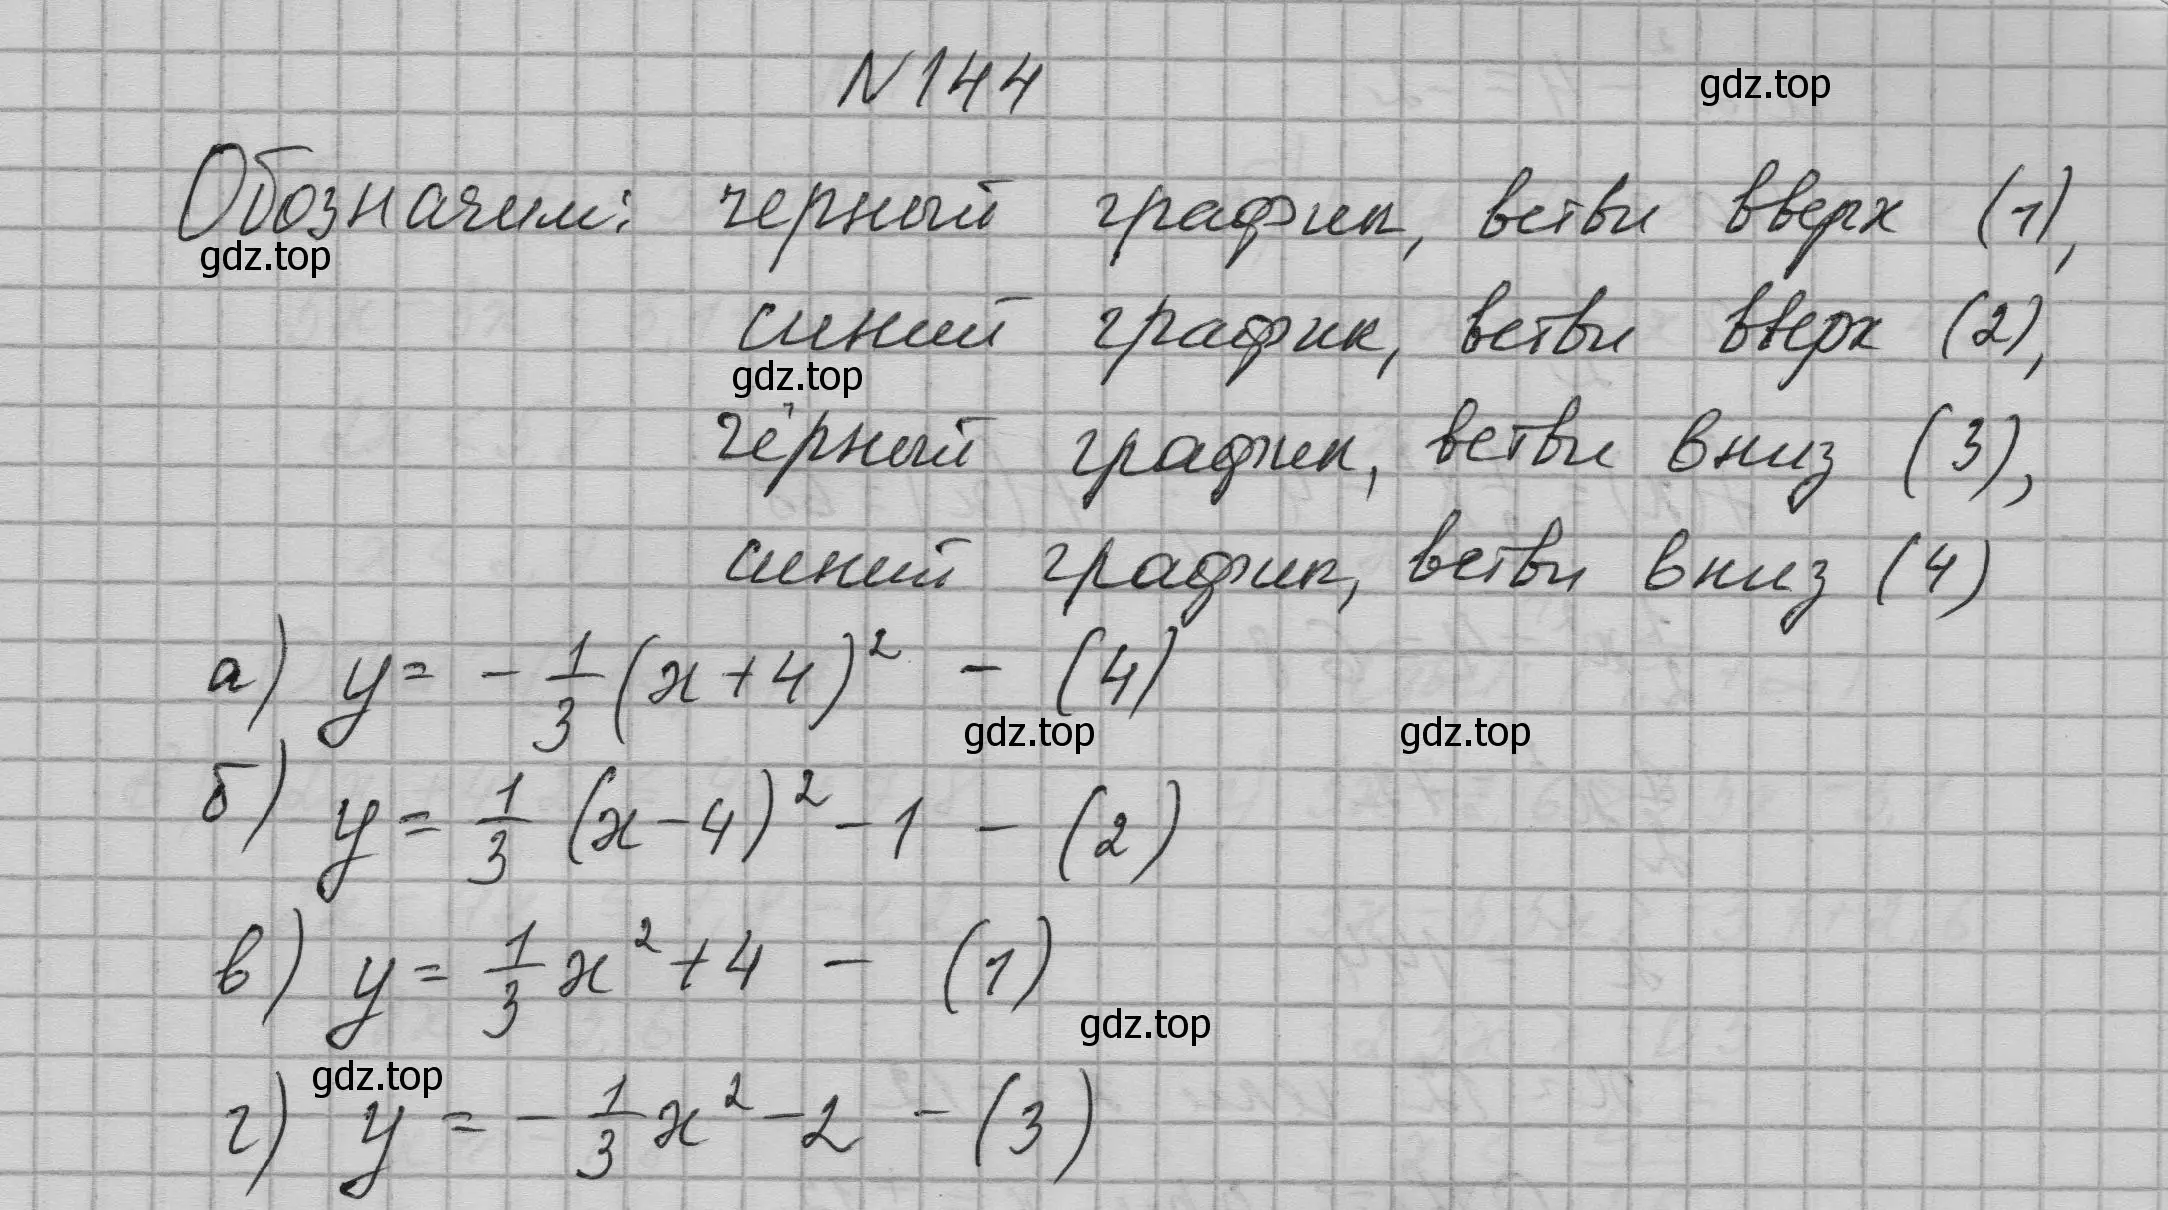 N 144
gdz.top
Обозначим: черный график, ветви вверх (1),
gdz.top
синий график, ветви вверх (2),
gdz.top
чёрный график, ветви вниз (3),
синий график, ветви вниз (4)
а) y = - 1/3 (x+4)² - (4)
gdz.top gdz.top
б) y = 1/3 (x-4)² - 1 - (2)
в) y = 1/3 x² + 4 - (1)
gdz.top
gdz.top
г) y = - 1/3 x² - 2 - (3)